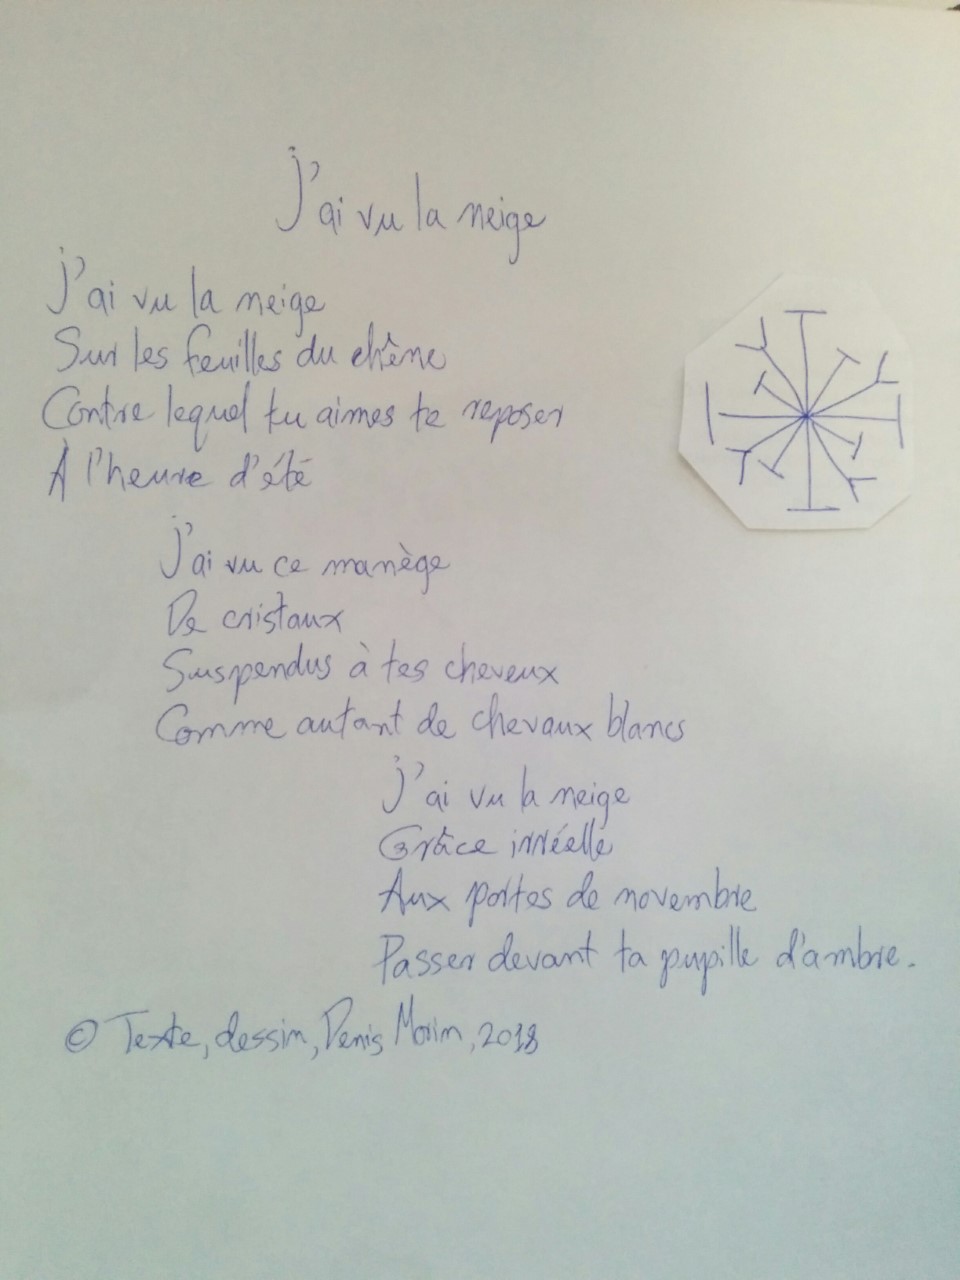 J'ai vu la neige
J'ai vu la neige
Sur les feuilles du chêne
Contre lequel tu aimes te reposer
A l'heure d'été
J'ai vu ce manège
De cristaux
Suspendus à tes cheveux
Comme autant de chevaux blancs
J'ai vu la neige
Grâce irréelle
Aux portes de novembre
Passer devant ta pupille d'ambre.
© Texte, dessin, Denis Morin, 2018